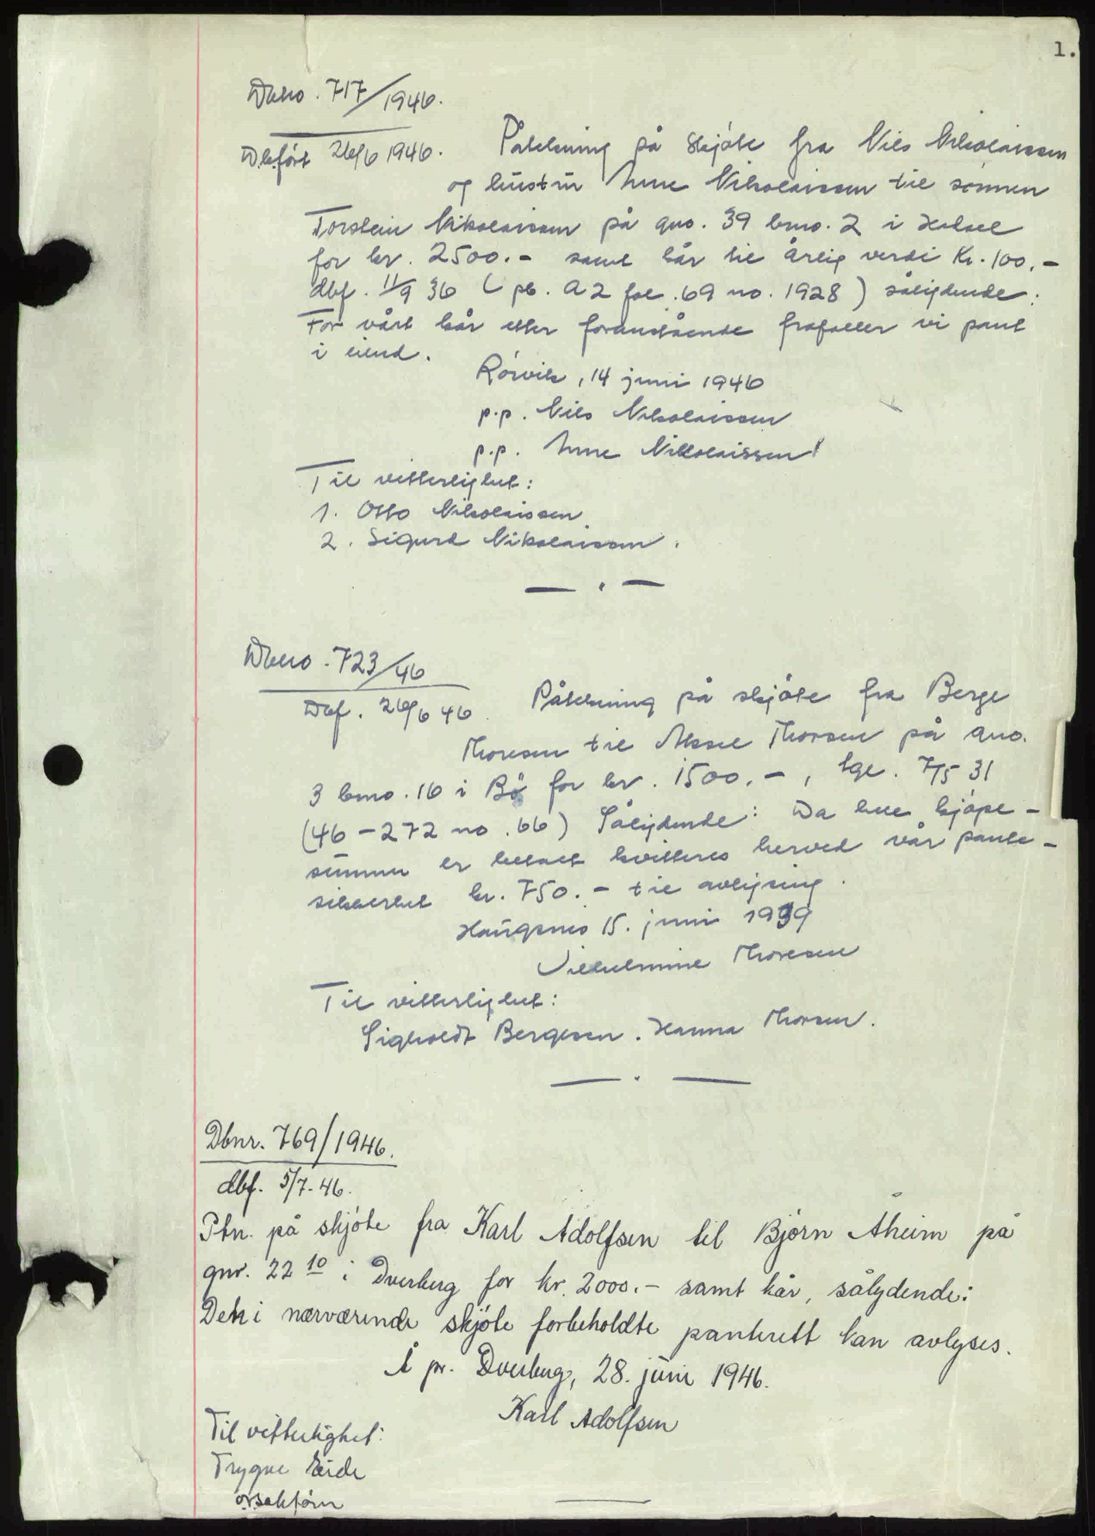 1.
Dbno. 717/1946.
Dbført 26/6 1946. Påtekning på skjøte fra Nils Nikolaissen
og hustru Anne Nikolaissen til sønnen
Torstein Nikolaissen på gno. 39 bno. 2 i
for kr. 2500.- samt kår til årlig verdi Kr. 100.-
dbf. 11/9 36 (pb. A2 fol. 69 no. 1928) sålydende:
For vårt kår etter foranstående frafaller vi pant
i eiend.
Rörvik, 14 juni 1946
p.p. Nils Nikolaissen
p.p. Anne Nikolaissen
Til vitterlighet:
1. Otto Nikolaissen
2. Sigurd Nikolaissen.
Dbno. 723/46
Dbf. 26/6 46 Påtekning på skjøte fra Berge
Thoresen til Aksel Thorsen på gno.
3 bno. 16 i Bø for kr. 1500.-, tgl. 7/5 31
(46-272 no. 66) Sålydende: Da hele kjøpe-
summen er betalt kvitteres herved vår pante-
sikkerhet kr. 750.- til avlysing.
Haugsnes 15. juni 1939
Vilhelmine Thoresen
Til vitterlighet:
Sigvaldt Bergesen. Hanna Thorsen.
Dbnr. 769/1946.
dbf. 5/7-46.
Ptn. på skjöte fra Karl Adolfsen til Björn Åheim på
gnr. 22 10 i Dverberg for kr. 2000.- samt kår, sålydende:
Den i nærværende skjöte forbeholdte panterett kan avlyses.
Å pr. Dverberg, 28. juni 1946.
Karl Adolfsen
Til vitterlighet:
Trygve Eide